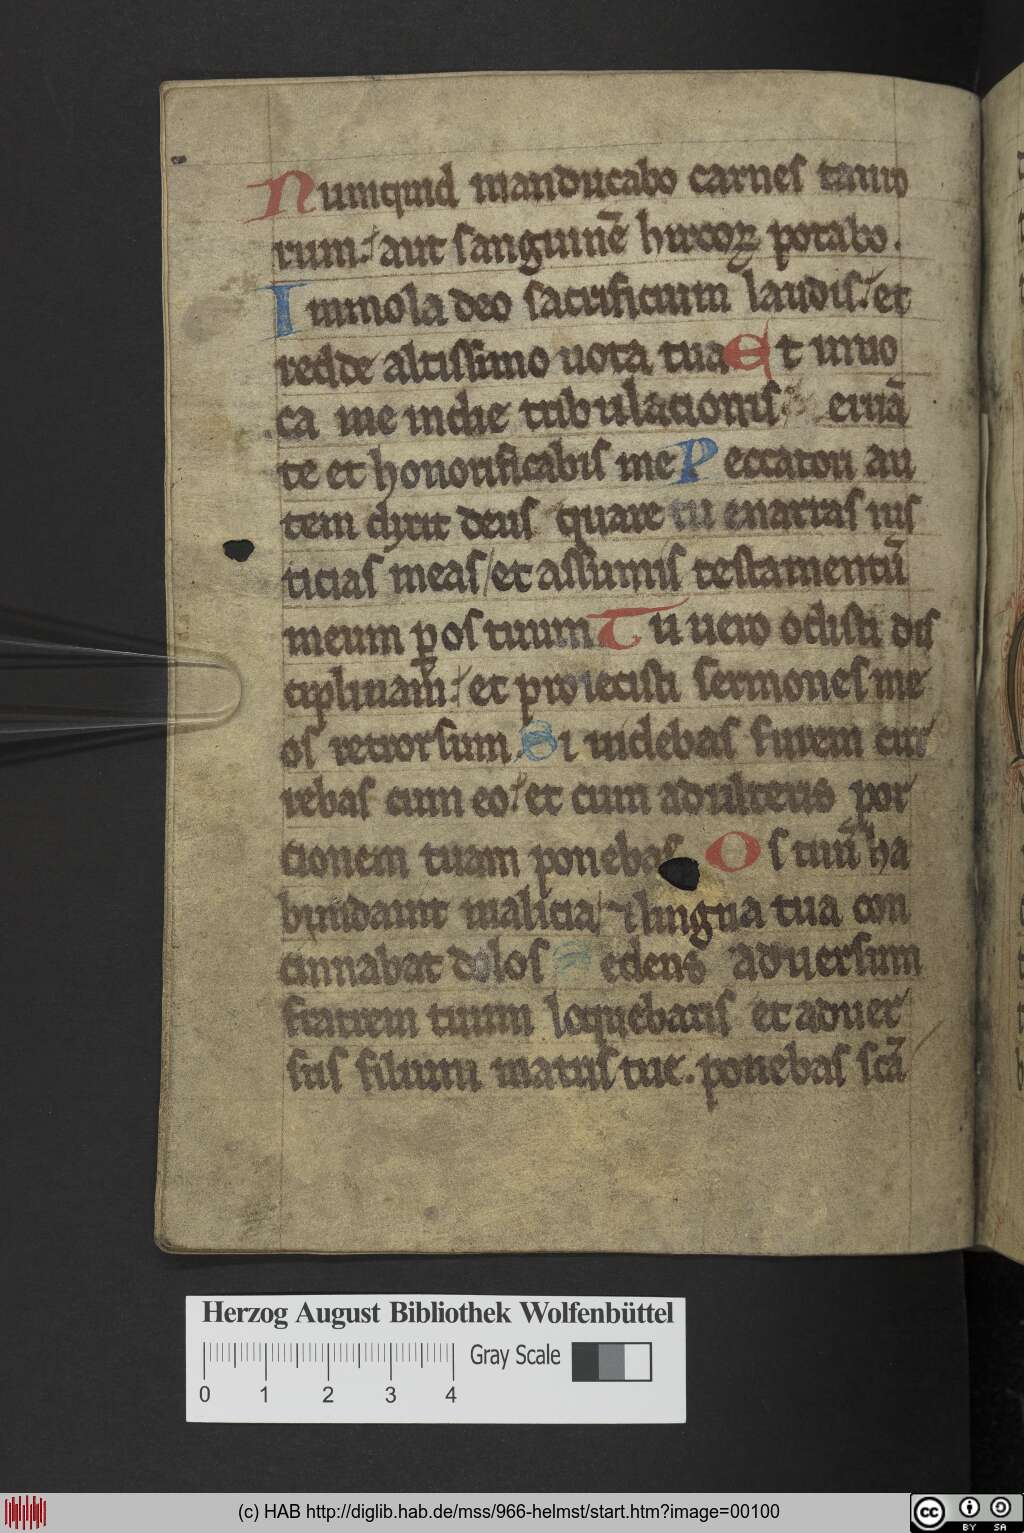 Numquid manducabo carnes tauro
rum. aut sanguinē hircoꝝ potabo.
Immola deo sacrificium laudis. et
redde altissimo uota tua Et inuo
ca me in die tribulationis eruā
te et honorificabis me Peccatori au
tem dixit deus quare tu enarras ius
ticias meas et assumis testamentū
meum p os tuum Tu uero odisti dis
ciplinam. et proiecisti sermones me
os retrorsum. Si uidebas furem cur
rebas cum eo. et cum adulteris por
tionem tuam ponebas Os tuū ha
bundauit malicia lingua tua con
cinnabat dolos Sedens aduersum
fratrem tuum loquebaris et aduer
sus filium matris tue. ponebas scā
Herzog August Bibliothek Wolfenbüttel
Gray Scale
0 1 2 3 4
(c) HAB http://diglib.hab.de/mss/966-helmst/start.htm?image=00100
cc BY SA